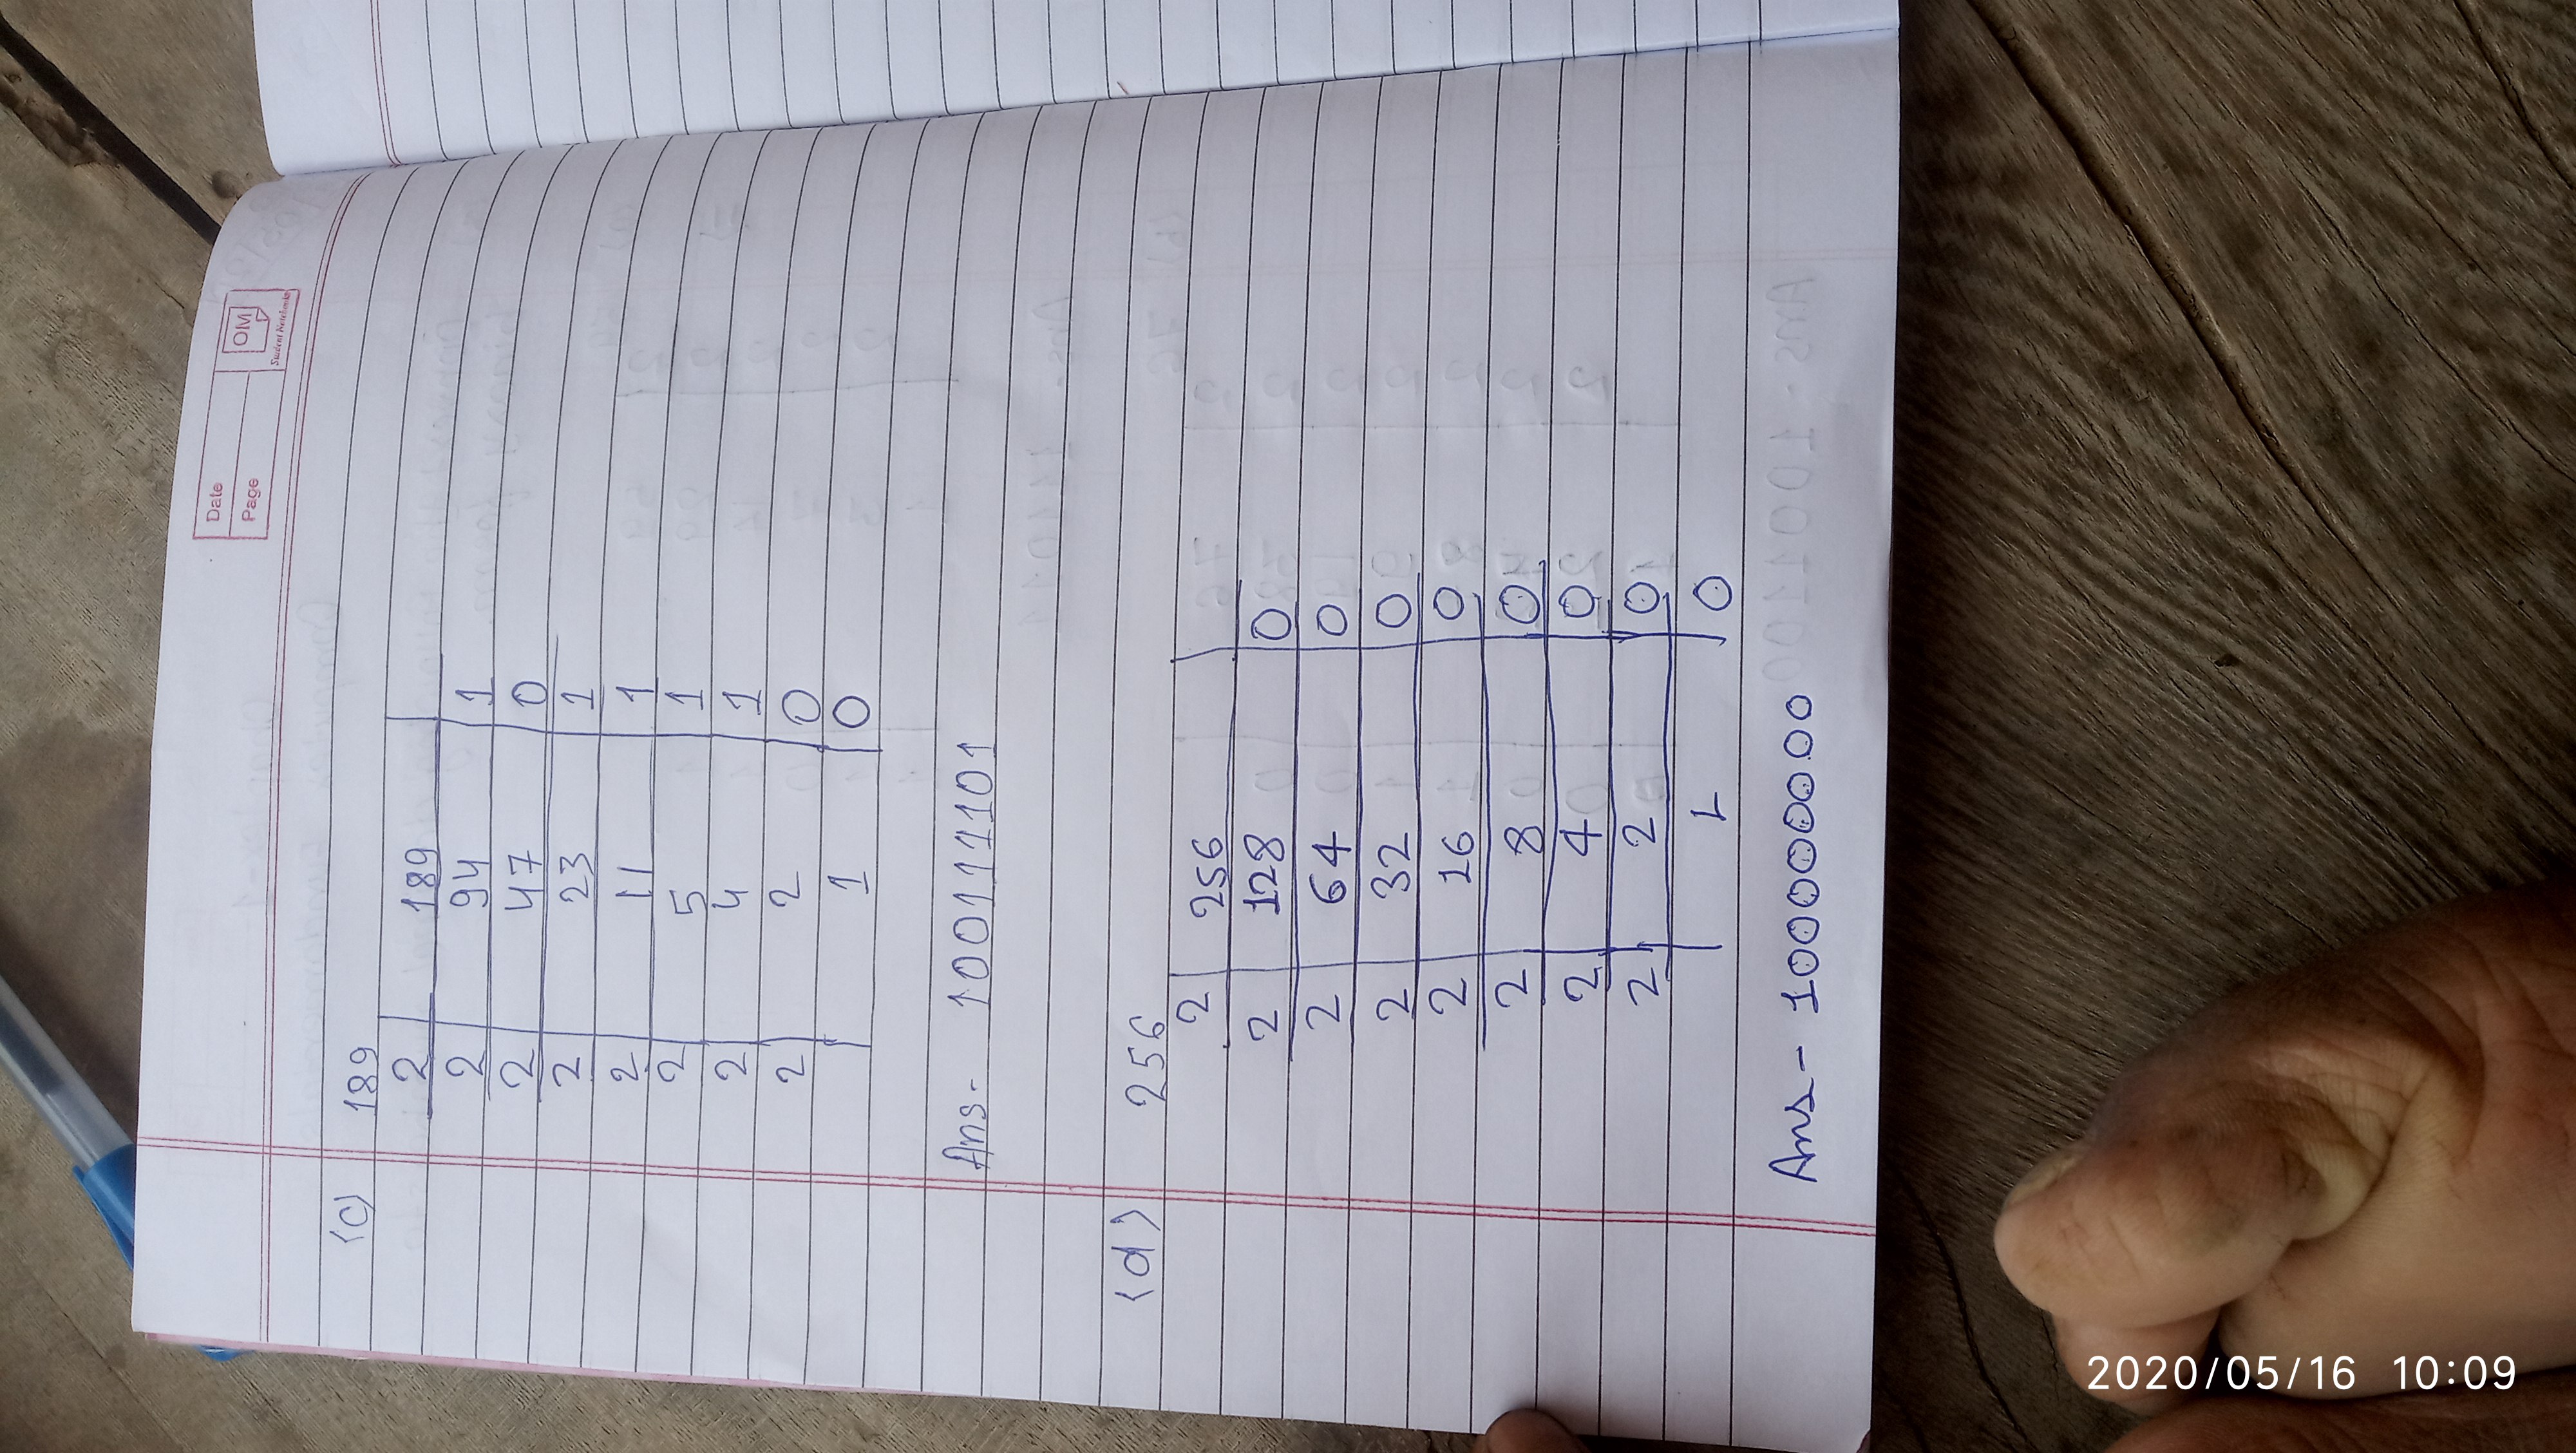 Date
Page
OM
Student Notebooks
(c) 189
2 189
2 94 1
2 47 0
2 23 1
2 11 1
2 5 1
2 4 1
2 2 0
1 0
Ans. 100111101
(d) 256
2 256
2 128 0
2 64 0
2 32 0
2 16 0
2 8 0
2 4 0
2 2 0
1 0
Ans - 100000000
2020/05/16 10:09